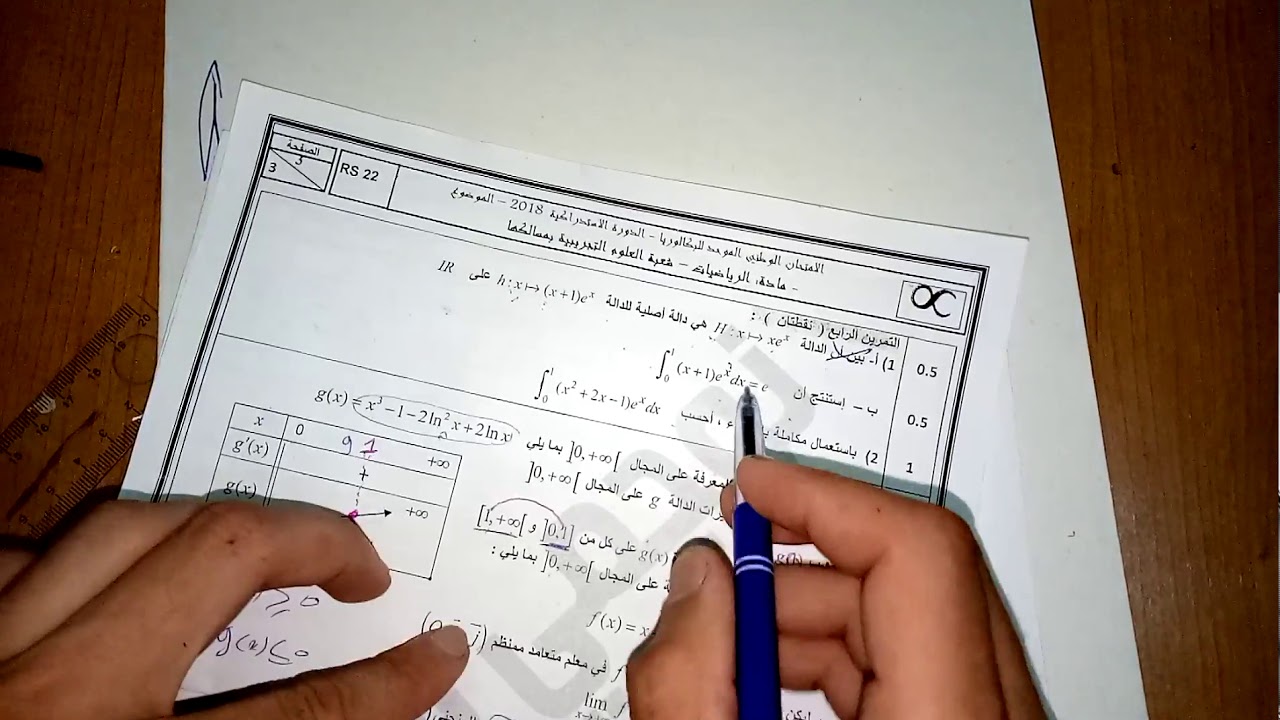 الصفحة
3
3
RS 22
الامتحان الوطني الموحد للبكالوريا - الدورة الاستدراكية 2018 - الموضوع
- مادة: الرياضيات - شعبة العلوم التجريبية بمسالكها
التمرين الرابع ( نقطتان ) :
0.5
1) أ- بين أن الدالة H : x ↦ xe^x هي دالة أصلية للدالة h : x ↦ (x+1)e^x على IR
0.5
ب – إستنتج أن ∫_0^1 (x+1)e^x dx = e
1
2) باستعمال مكاملة ، أحسب ∫_0^1 (x²+2x−1)e^x dx
المعرفة على المجال ]0,+∞[ بما يلي g(x) = x³ −1−2ln² x+2ln x
الدالة g على المجال ]0,+∞[
g(x) على كل من ]0,1] و [1,+∞[
على المجال ]0,+∞[ بما يلي :
f(x) = x
في معلم متعامد ممنظم
lim f
x 0 1 +∞
g'(x) +
g(x) +∞
≥ 0
g(x) ≤ 0